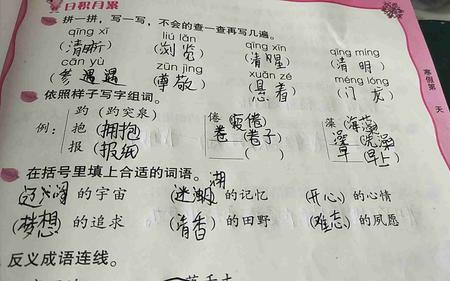 日积月累
拼一拼，写一写，不会的查一查再写几遍。
qīng xī liú lǎn qīng xīn qīng míng
(清晰) (浏览) (清醒) (清明)
cān yù zūn jìng xuān zé ménɡ lónɡ
(参遇遇) (尊敬) (悬着) (门龙)
寒假第 天
依照样子写字组词。
趵(趵突泉) 倦(疲倦) 藻(海藻)
例：抱(拥抱) 卷(卷子) 澡(洗澡)
报(报纸) ( ) 早(早上)
在括号里填上合适的词语。
的宇宙 的记忆 (开心)的心情
(梦想)的追求 (清香)的田野 (难忘)的夙愿
反义成语连线。